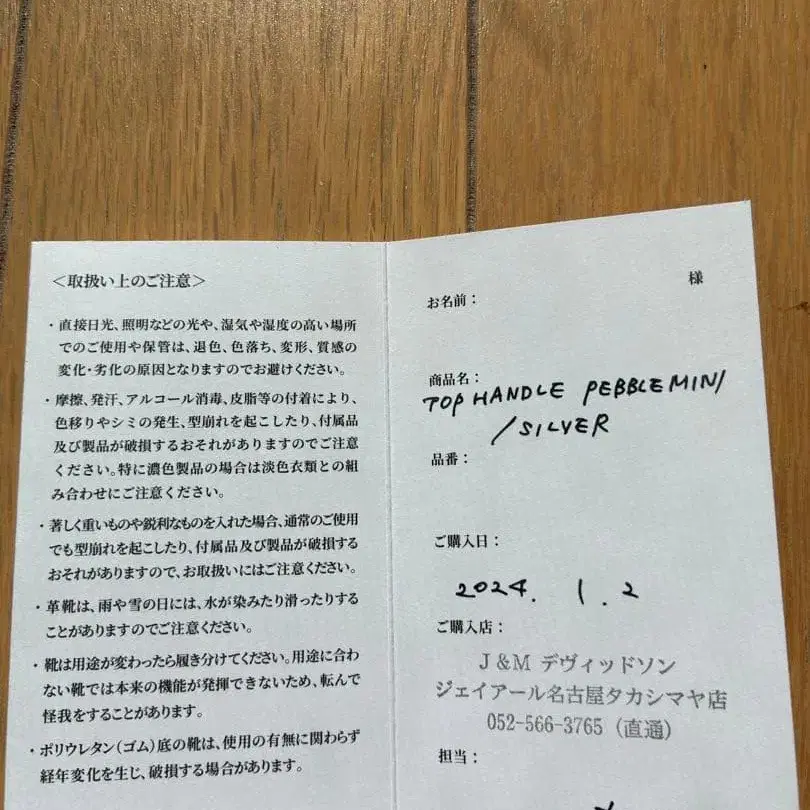 <取扱い上のご注意>
・直接日光、照明などの光や、湿気や湿度の高い場所
でのご使用や保管は、退色、色落ち、変形、質感の
変化・劣化の原因となりますのでお避けください。
・摩擦、発汗、アルコール消毒、皮脂等の付着により、
色移りやシミの発生、型崩れを起こしたり、付属品
及び製品が破損するおそれがありますのでご注意
ください。特に濃色製品の場合は淡色衣類との組
み合わせにご注意ください。
・著しく重いものや鋭利なものを入れた場合、通常のご使用
でも型崩れを起こしたり、付属品及び製品が破損する
おそれがありますので、お取扱いにはご注意ください。
・革靴は、雨や雪の日には、水が染みたり滑ったりする
ことがありますのでご注意ください。
・靴は用途が変わったら履き分けてください。用途に合わ
ない靴では本来の機能が発揮できないため、転んで
怪我をすることがあります。
・ポリウレタン(ゴム)底の靴は、使用の有無に関わらず
経年変化を生じ、破損する場合があります。
様
お名前：
商品名：
TOP HANDLE PEBBLE MINI
/SILVER
品番：
ご購入日：
2024. 1. 2
ご購入店：
J&M デヴィッドソン
ジェイアール名古屋タカシマヤ店
052-566-3765 (直通)
担当：